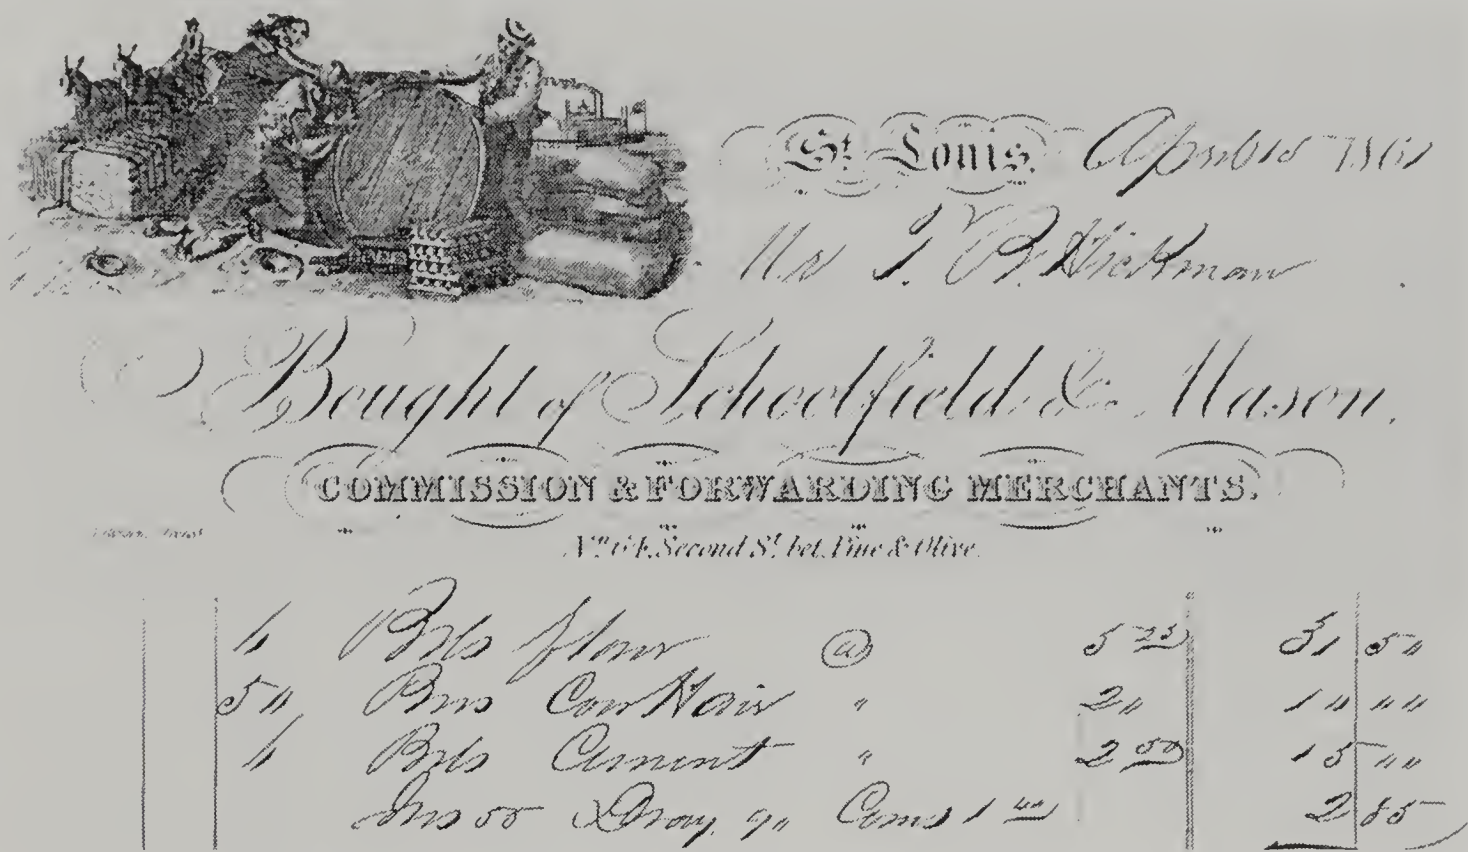 St. Louis, April 15 1861
Mr T. B. Hickman
Bought of Schoolfield & Mason,
COMMISSION & FORWARDING MERCHANTS.
Second St. bet. Pine & Olive.
6 Brls flour @ 5 25 31 50
50 Bus Cow Hair " 20 10 00
6 Brls Cement " 2 50 15 00
Ins 55 Dray 90 Coms 1 40 2 85